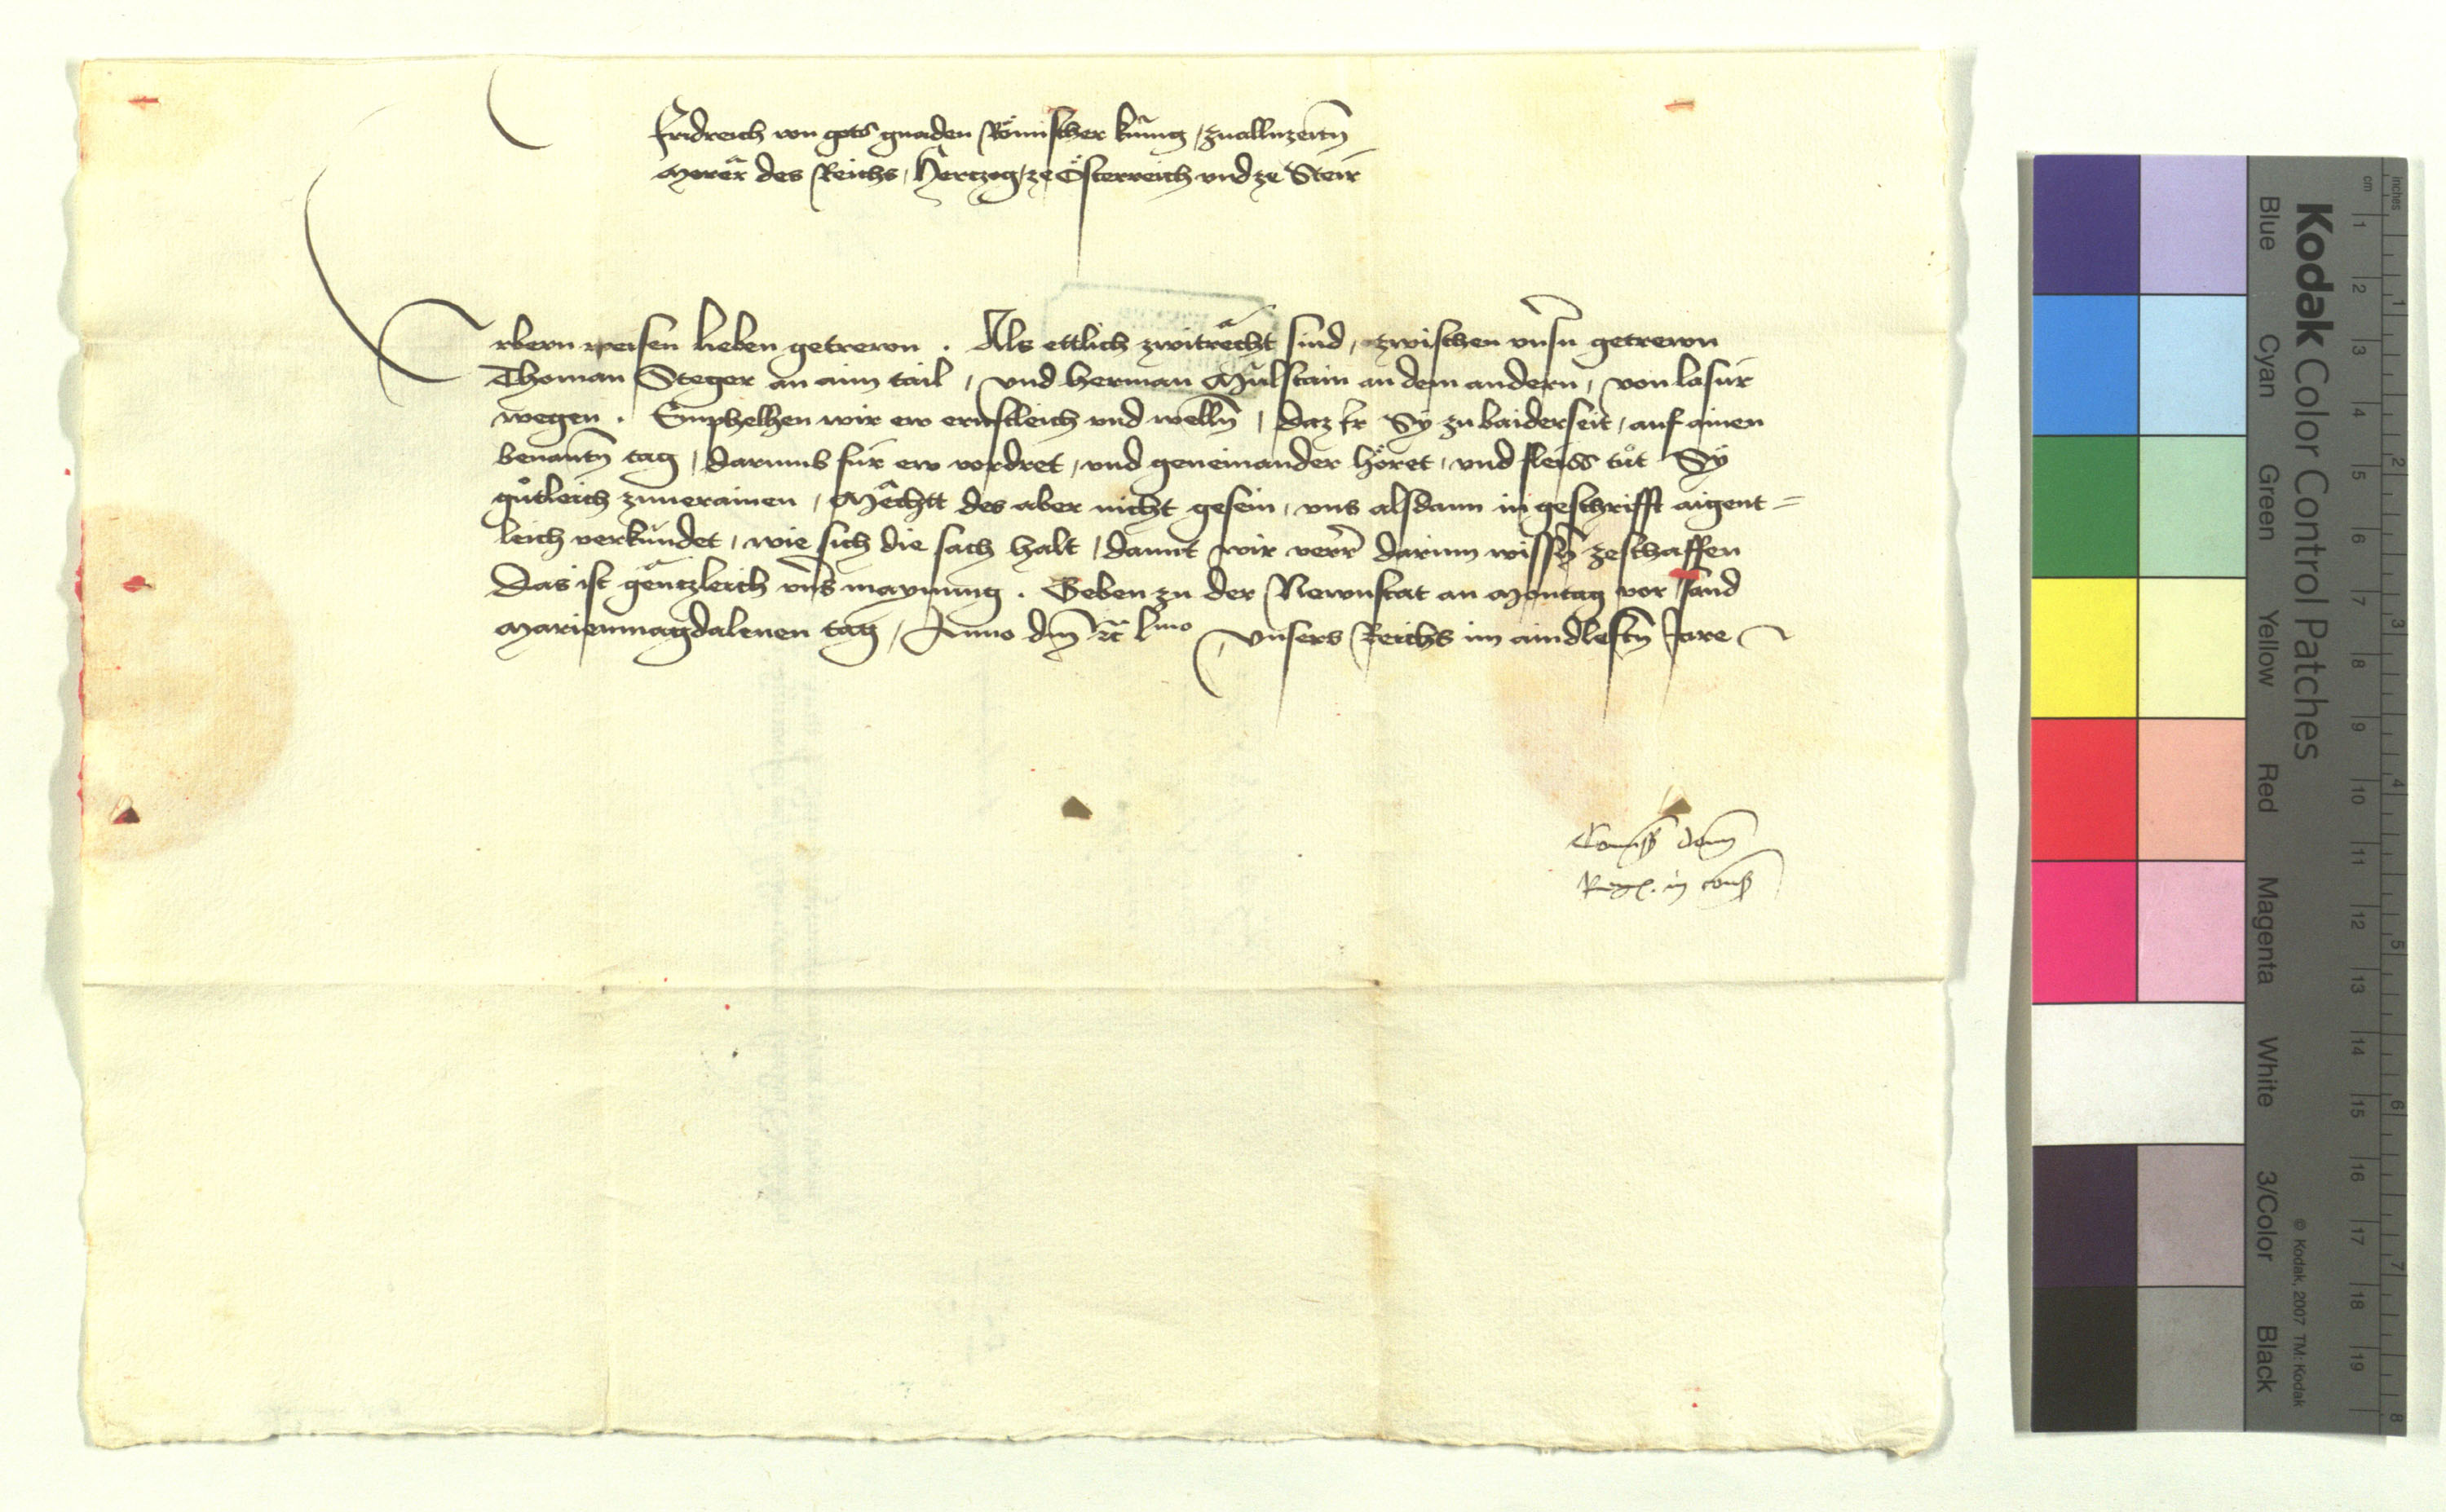 Fridreich von gots gnaden Römischer kunig, zuallnzeitn̄
Merer des Reichs, Hertzog ze Österreich vnd ze Steir
Erbern weisen lieben getrewn . Als ettlich zwitrêcht sind, zwischen vnsn̄ getrewn
Thoman Steger an aim tail, vnd Herman Mülstain an dem andern, von lasur
wegen . Emphelhen wir ew ernstleich vnd welln̄, daz Ir Sÿ zu baiderseit, auf ainen
benantn̄ tag, darumb für ew vordret, vnd geneinander höret, vnd fleiss tůt Sÿ
gůtleich zuuerainen, Mêchtt des aber nicht gesein, vns alsdann in geschrifft aigent=
leich verkündet, wie sich die sach halt, damit wir verr̄ darum wissn̄ zeschaffen
Das ist gêntzleich vns̄ maynung . Geben zu der Newnstat an Montag vor sand
Marienmagdalenen tag, Anno dm̄ etc̄ lmo, Vnsers Reichs im aindleftn̄ Jare
Com̄iss̄ dom̄
Reg. in cons̄
Kodak Color Control Patches
Blue Cyan Green Yellow Red Magenta White 3/Color Black
© Kodak, 2007 TM: Kodak
inches 1 2 3 4 5 6 7 8
cm 1 2 3 4 5 6 7 8 9 10 11 12 13 14 15 16 17 18 19